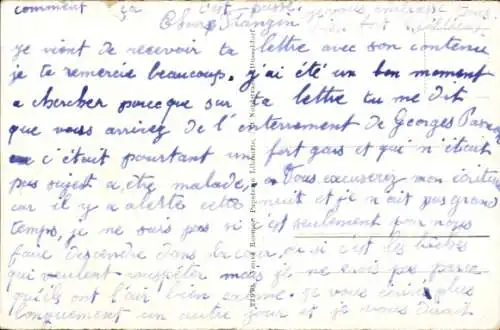 comment ça c'est passé.
Chère
je vient de recevoir ta lettre avec son contenu
je te remercie beaucoup. j'ai été un bon moment
a chercher parce que sur ta lettre tu me dit
que vous arrivez de l'enterrement de Georges
c'était pourtant un fort gars et qui n'était
pas sujet a être malade, Vous excuserez mon écriture
car il y a alerte cette nuit et je n'ait pas grand
temps, je ne sais pas si c'est seulement pour nous
faire descendre dans la cave, ou si c'est les boches
qui veulent mais je ne crois pas parce
qu'ils ont l'air bien calme. je vous écrirai plus
longuement un autre jour et je vous dirait